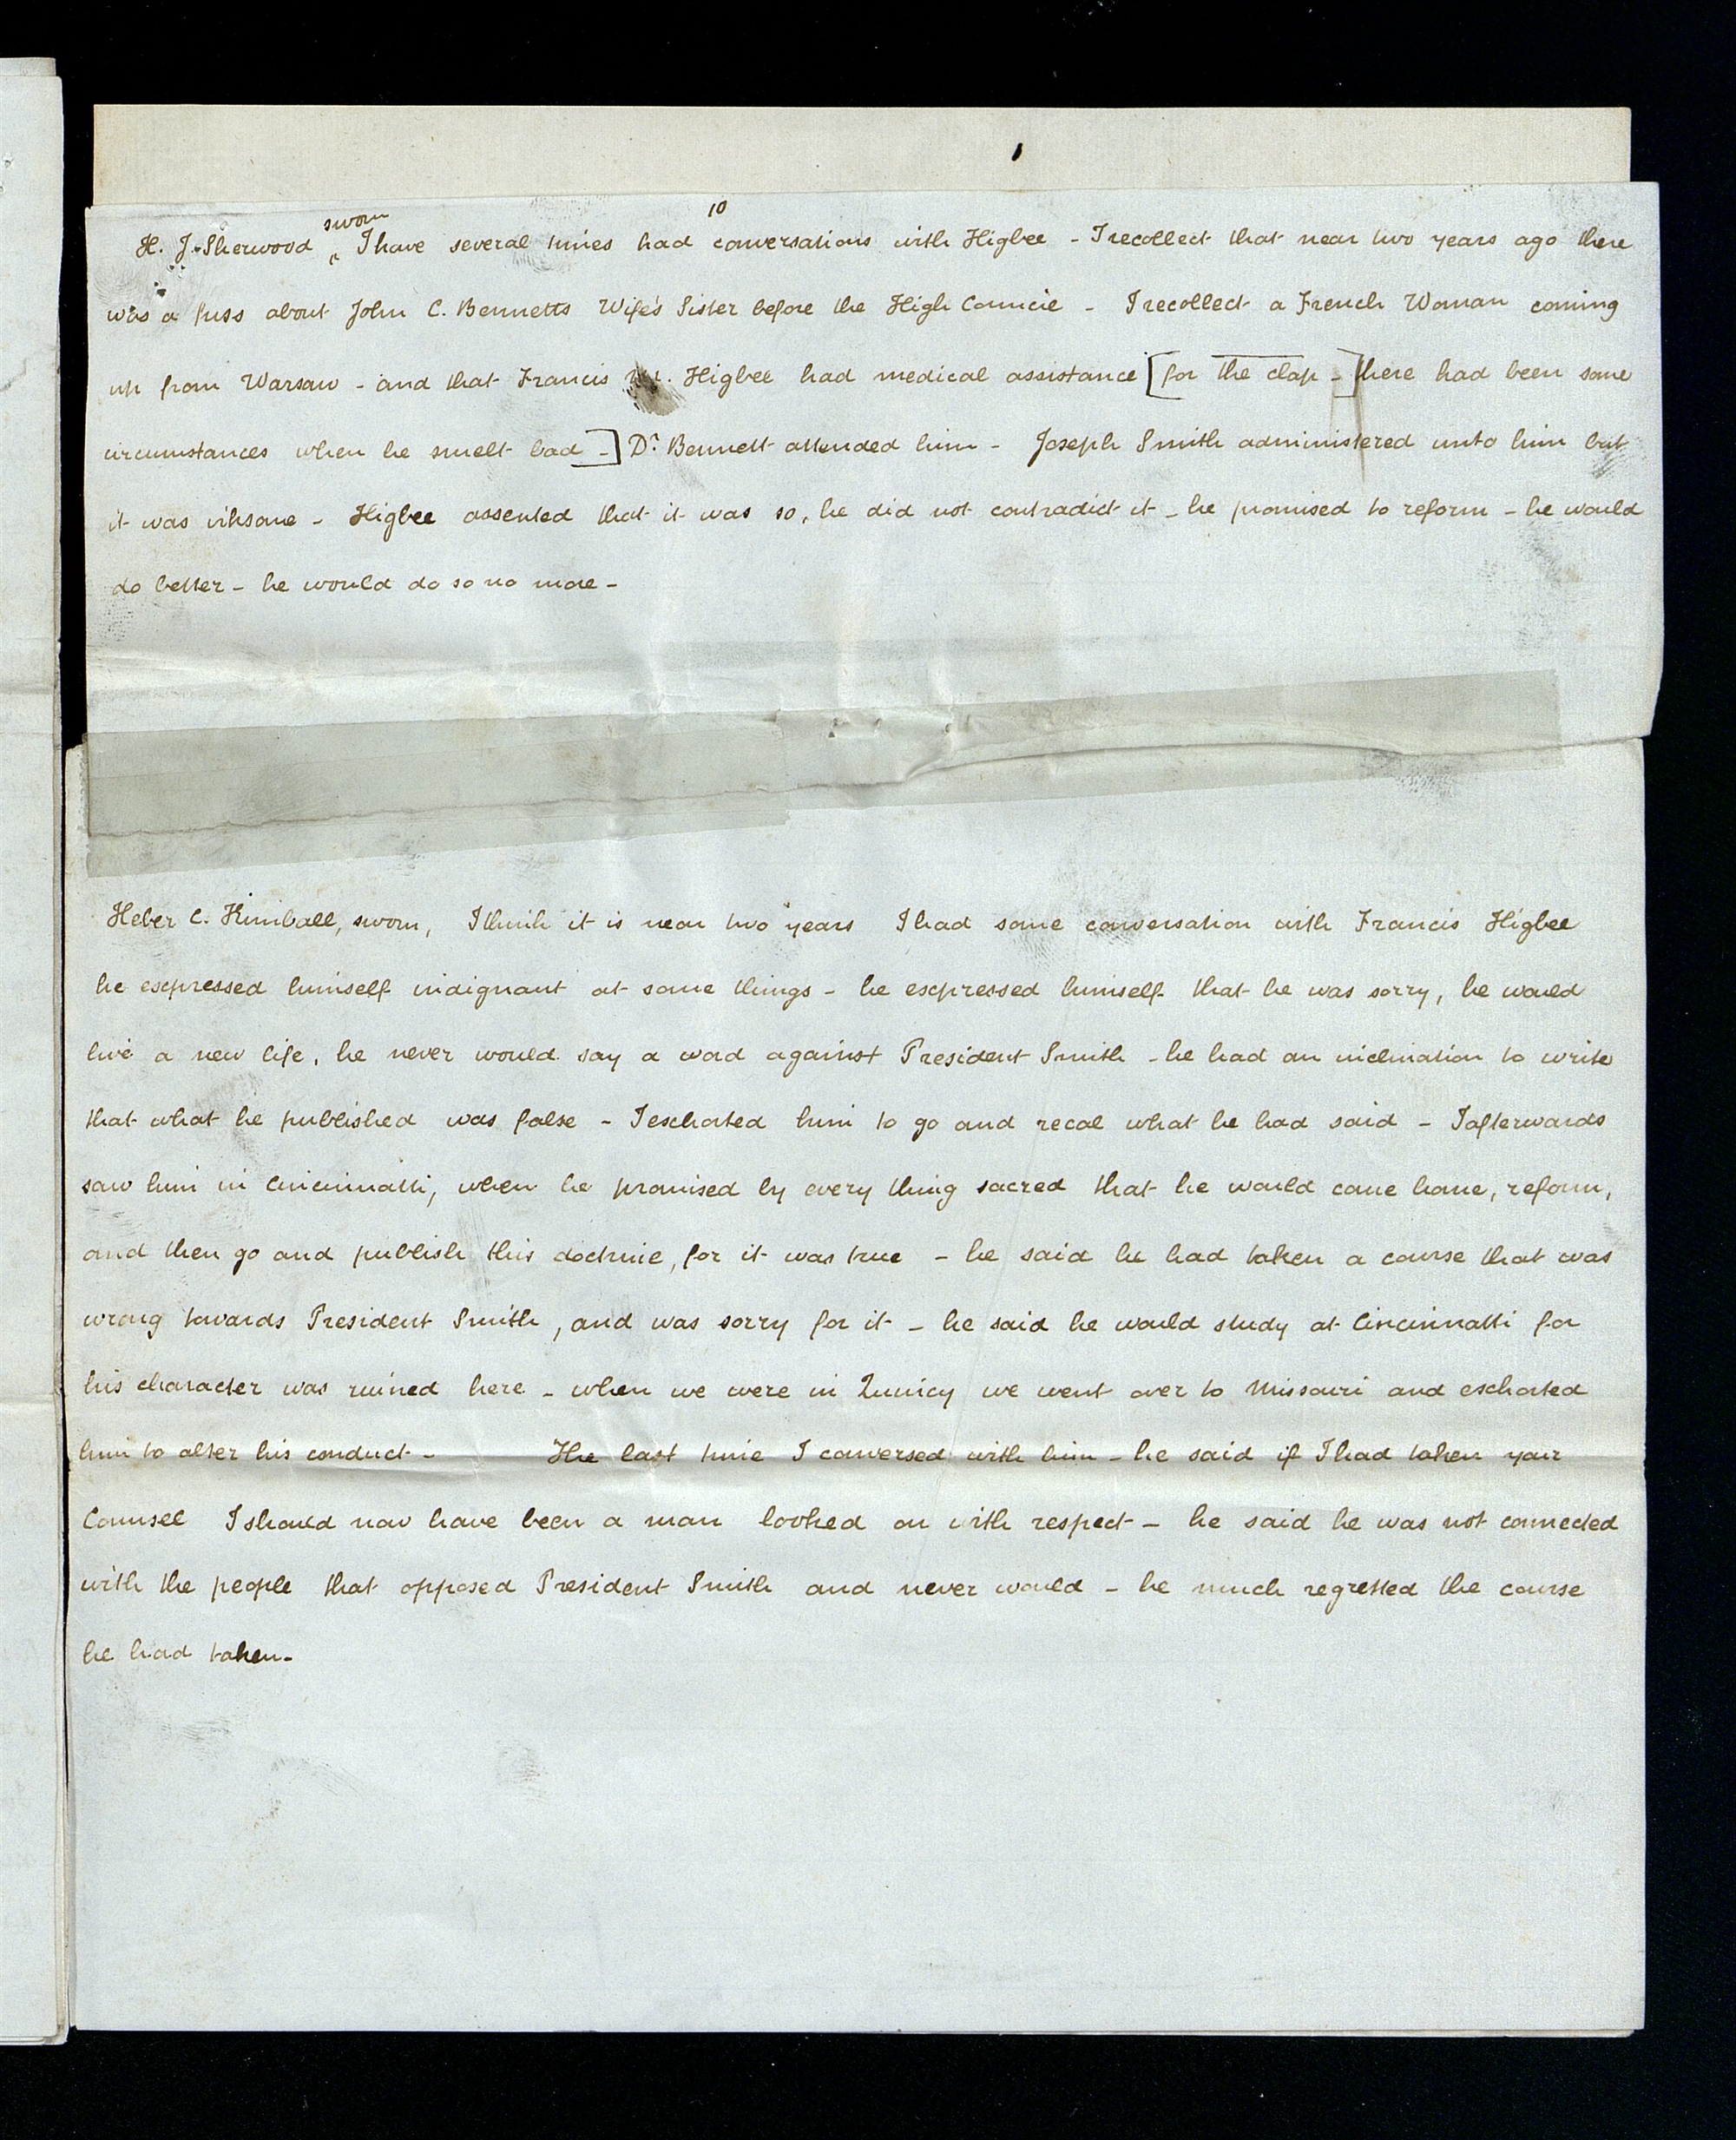 10
H. J. Sherwood sworn I have several times had conversations with Higbee - I recollect that near two years ago there
was a fuss about John C. Bennetts Wife's Sister before the High Council - I recollect a French Woman coming
up from Warsaw - and that Francis M. Higbee had medical assistance [for the clap -] there had been some
circumstances when he smelt bad -] Dr. Bennett attended him - Joseph Smith administered unto him but
it was irksome - Higbee assented that it was so, he did not contradict it - he promised to reform - he would
do better - he would do so no more -
Heber C. Kimball, sworn, I think it is near two years I had some conversation with Francis Higbee
he expressed himself indignant at some things - he expressed himself that he was sorry, he would
live a new life, he never would say a word against President Smith - he had an inclination to write
that what he published was false - I exhorted him to go and recal what he had said - I afterwards
saw him in Cincinnatti, when he promised by every thing sacred that he would come home, reform,
and then go and publish this doctrine, for it was true - he said he had taken a course that was
wrong towards President Smith, and was sorry for it - he said he would study at Cincinnatti for
his character was ruined here - when we were in Quincy we went over to Missouri and exhorted
him to alter his conduct - The last time I conversed with him - he said if I had taken your
Counsel I should now have been a man looked on with respect - he said he was not connected
with the people that opposed President Smith and never would - he much regretted the course
he had taken -